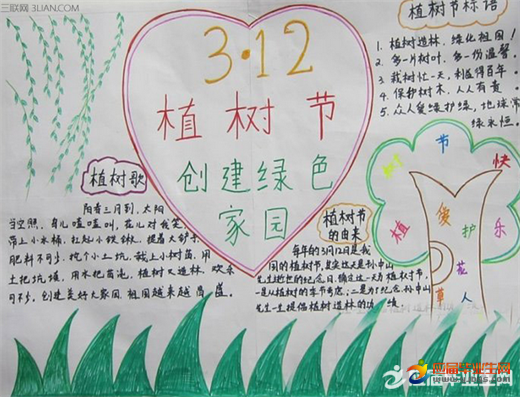 三联网 3LIAN.COM
3·12
植树节
创建绿色
家园
植树节标语
1. 植树造林，绿化祖国！
2. 多一片树叶，多一份温馨。
3. 我树忙一天，利益得百年。
4. 保护树木，人人有责。
5. 众人爱绿护绿，地球常
绿永恒。
植树歌
阳春三月到，太阳
当空照，鸟儿喳喳叫，花儿对我笑。
带上小水桶，扛起小铁锹，提着大铲子，
肥料不可少，挖个小土坑，栽上小树苗，用
土把坑填，用水把苗浇，植树又造林，欢乐
可不少，创建美好大家园，祖国越来越昌盛。
植树节
的由来
每年的3月12日是我
国的植树节，其实这天是孙中山
先生逝世的纪念日，确定这一天为植树节，
一是从植树的季节考虑；二是为了纪念孙中山
先生一生提倡植树造林的功绩。
植树节快乐
爱护花草人人